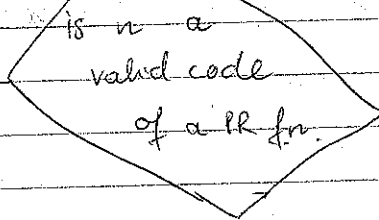 is n a
valid code
of a PR fn.